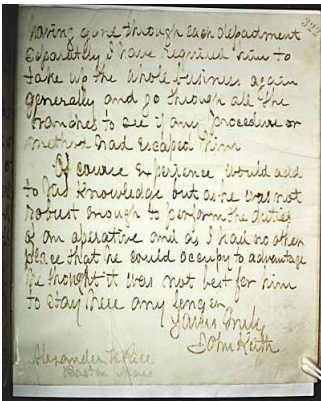 having gone through each department
separately I have required him to
take up the whole business again
generally and go through all the
branches to see if any procedure or
method had escaped him
Of course Experience would add
to his knowledge but as he was not
robust enough to perform the duties
of an operative and as I had no other
place that he could occupy to advantage
he thought it was not best for him
to stay here any longer
Yours truly
John Keith
Alexander H Rice
Boston Mass